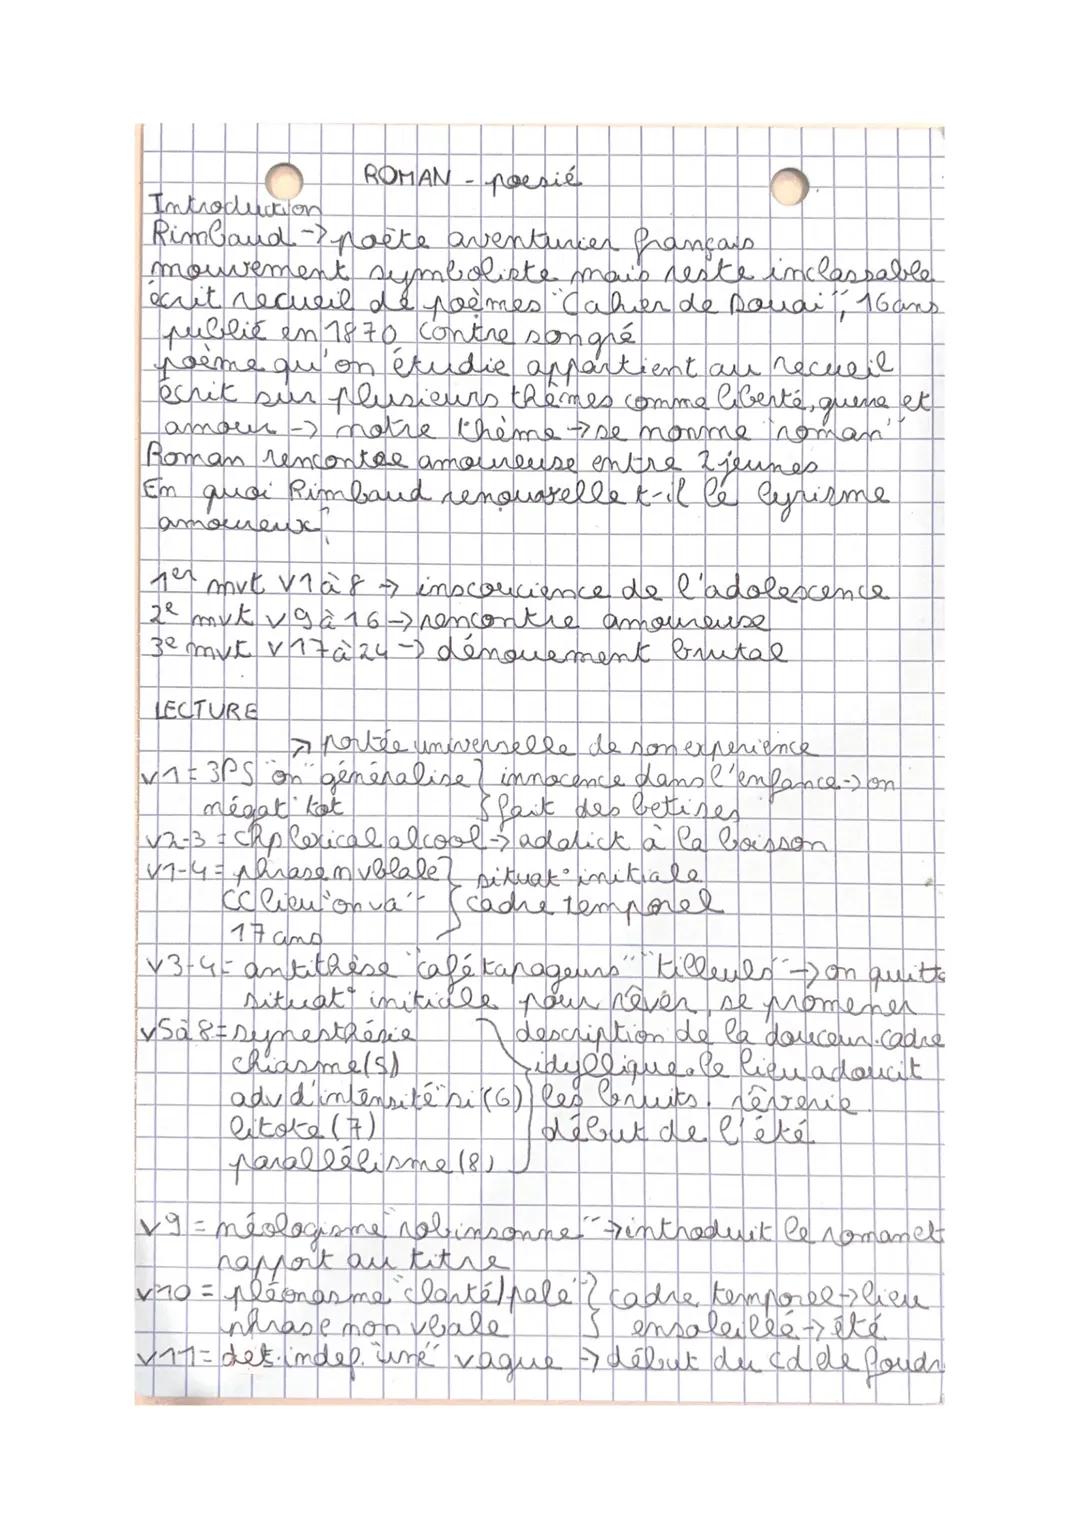 ROMAN - poesié
Introduction
Rimbaud -> poète aventurier français
mouvement symboliste mais reste inclassable
écrit recueil de poèmes "Cahier de Douai", 16 ans
publié en 1870 contre son gré
poème qu'on étudie appartient au recueil
écrit sur plusieurs thèmes comme liberté, guerre et
amour -> notre thème -> se nomme "roman"
Roman rencontre amoureuse entre 2 jeunes
En quoi Rimbaud renouvelle t-il le lyrisme
amoureux?
1er mvt v1 à 8 -> inscoucience de l'adolescence
2e mvt v9 à 16 -> rencontre amoureuse
3e mvt v17 à 24 -> dénouement brutal
LECTURE
-> portée universelle de son experience
v1 = 3PS "on" généralise } innocence dans l'enfance -> on
négat° tot } fait des betises
v2-3 = chp lexical alcool -> addict à la boisson
v1-4 = phrase nvblale } situat° initiale
CC lieu "on va" } cadre temporel
17 ans
v3-4 = antithèse "café tapageurs" "tilleuls" -> on quitte
situat° initiale pour rêver, se promener
v5 à 8 = synesthésie description de la douceur. cadre
chiasme (5) idyllique. le lieu adoucit
adv d'intensité "si" (6) les bruits. rêverie
litote (7) début de l'été
parallélisme (8)
v9 = néologisme "robinsonne" -> introduit le roman et
rapport au titre
v10 = pléonasme "clarté/pale" } cadre temporel -> lieu
phrase non vbale } ensoleillé -> été
v11 = det. indef. "une" vague -> début du cd de foudr